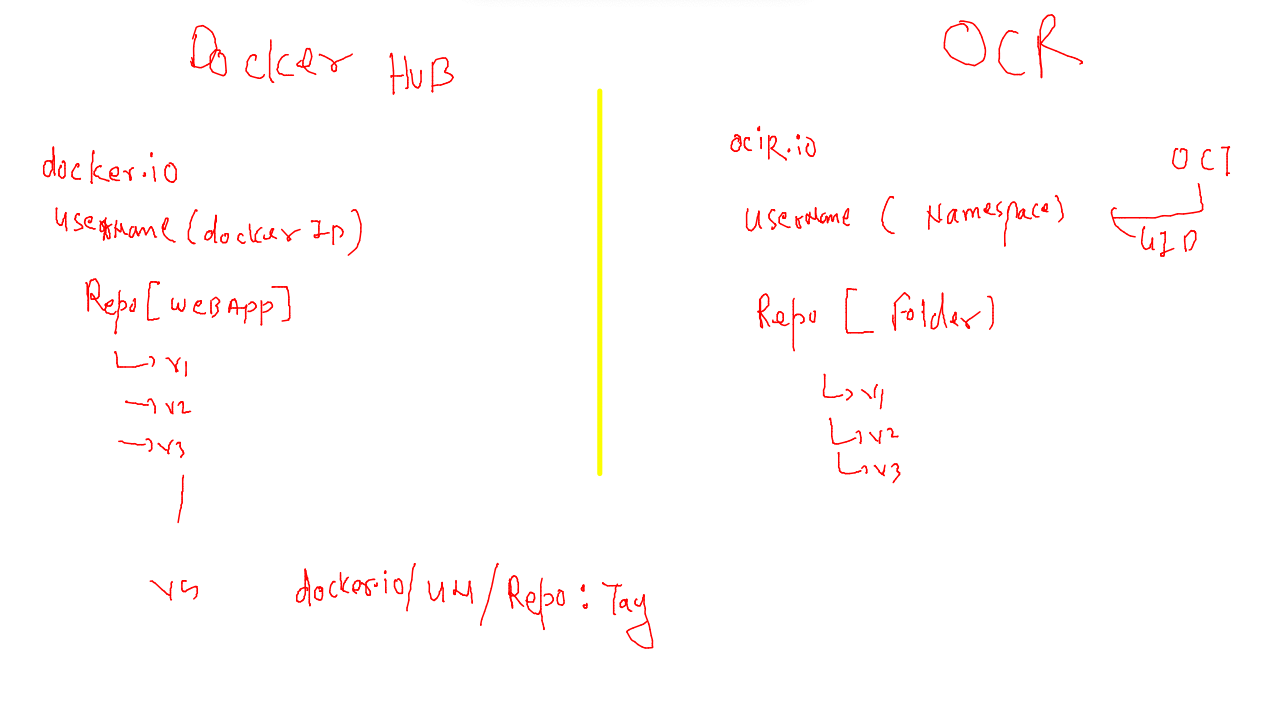 Docker HUB
docker.io
username (docker ID)
Repo [WEBAPP]
↳ v1
→ v2
→ v3
|
v5
docker.io/UN/Repo:Tag
OCR
OCIR.io
username ( Namespace)
OCI
UID
Repo [ Folder)
↳ v1
↳ v2
↳ v3